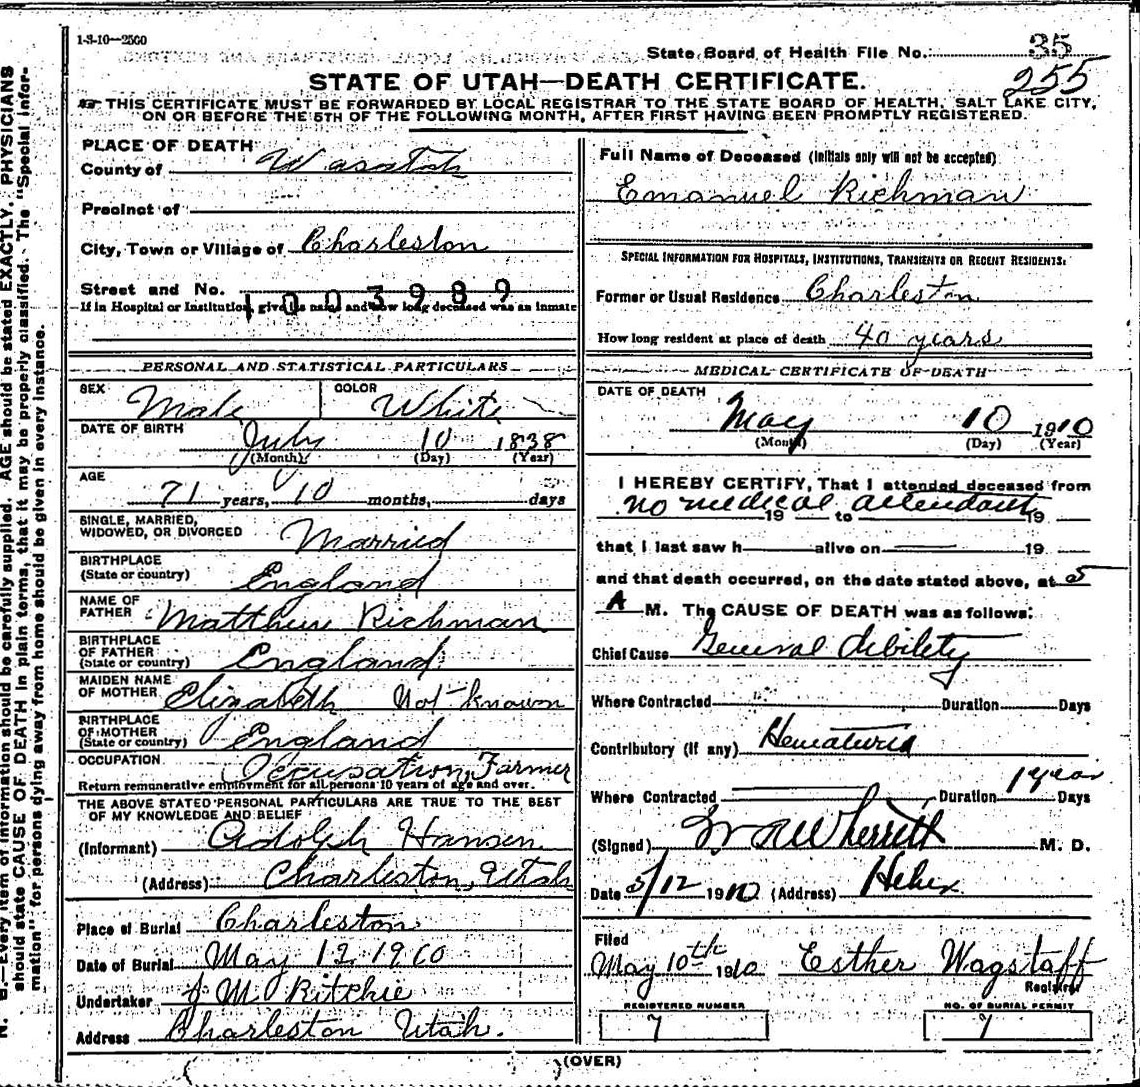 1-3-10—2500
State Board of Health File No. 35
255
STATE OF UTAH—DEATH CERTIFICATE.
THIS CERTIFICATE MUST BE FORWARDED BY LOCAL REGISTRAR TO THE STATE BOARD OF HEALTH, SALT LAKE CITY,
ON OR BEFORE THE 5TH OF THE FOLLOWING MONTH, AFTER FIRST HAVING BEEN PROMPTLY REGISTERED.
PLACE OF DEATH
County of Wasatch
Precinct of
City, Town or Village of Charleston
Street and No.
1003989
If in Hospital or Institution, give its name and how long deceased was an inmate
PERSONAL AND STATISTICAL PARTICULARS
SEX Male COLOR White
DATE OF BIRTH July 10 1838
(Month) (Day) (Year)
AGE
71 years, 10 months, days
SINGLE, MARRIED,
WIDOWED, OR DIVORCED Married
BIRTHPLACE
(State or country) England
NAME OF
FATHER Matthew Richman
BIRTHPLACE
OF FATHER
(State or country) England
MAIDEN NAME
OF MOTHER Elizabeth Not Known
BIRTHPLACE
OF MOTHER
(State or country) England
OCCUPATION Occupation, Farmer
Return remunerative employment for all persons 10 years of age and over.
THE ABOVE STATED PERSONAL PARTICULARS ARE TRUE TO THE BEST
OF MY KNOWLEDGE AND BELIEF
(Informant) Adolph Hansen
(Address) Charleston, Utah
Place of Burial Charleston
Date of Burial May 12 1910
Undertaker J M Ritchie
Address Charleston Utah.
Full Name of Deceased (Initials only will not be accepted)
Emanuel Richman
SPECIAL INFORMATION FOR HOSPITALS, INSTITUTIONS, TRANSIENTS OR RECENT RESIDENTS:
Former or Usual Residence Charleston
How long resident at place of death 40 years
MEDICAL CERTIFICATE OF DEATH
DATE OF DEATH
May 10 1910
(Month) (Day) (Year)
I HEREBY CERTIFY, That I attended deceased from
no medical attendant
19 to 19
that I last saw h alive on 19
and that death occurred, on the date stated above, at 5
A M. The CAUSE OF DEATH was as follows:
Chief Cause General debility
Where Contracted Duration Days
Contributory (if any) Hematuria
Where Contracted Duration 1 year Days
(Signed) Wherritt M. D.
Date 5/12 1910 (Address) Heber
Filed
May 10th 1910 Esther Wagstaff
Registrar
REGISTERED NUMBER
7
NO. OF BURIAL PERMIT
7
(OVER)
N. B.—Every item of information should be carefully supplied. AGE should be stated EXACTLY. PHYSICIANS
should state CAUSE OF DEATH in plain terms, that it may be properly classified. The "Special Infor-
mation" for persons dying away from home should be given in every instance.